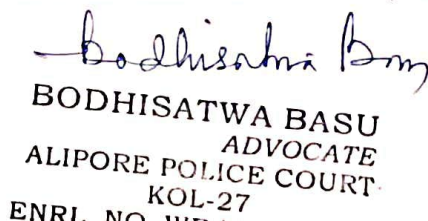 Bodhisatwa Basu
BODHISATWA BASU
ADVOCATE
ALIPORE POLICE COURT
KOL-27
ENRL. NO.